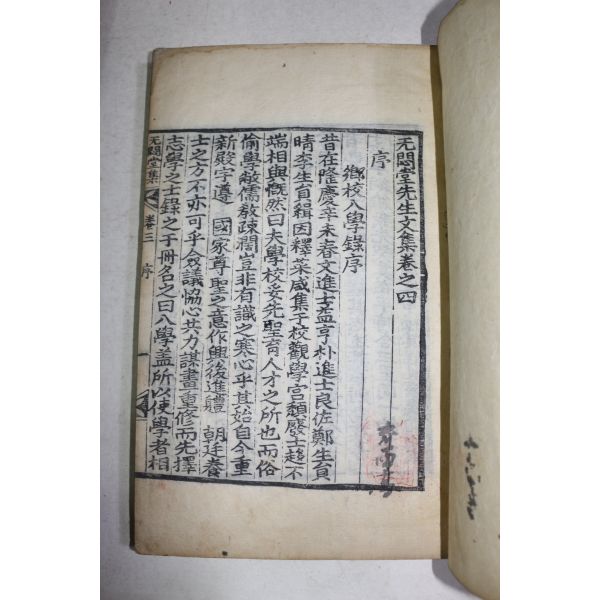 无悶堂先生文集卷之四
序
鄕校入學錄序
昔在隆慶辛未春文進士益亨朴進士良佐鄭生員
晴李生員緝因釋菜咸集于校觀學宮頹廢士趨不
端相與慨然曰夫學校妥先聖育人才之所也而俗
偷學敝儒敎疎濶豈非有識之寒心乎其始自今重
新殿宇遵 國家尊聖之意作興後進軆 朝廷養
士之方不亦可乎僉議協心共力謀畫重修而先擇
志學之士錄之于冊名之曰入學盖所以使學者相
无悶堂集 卷三 序 一